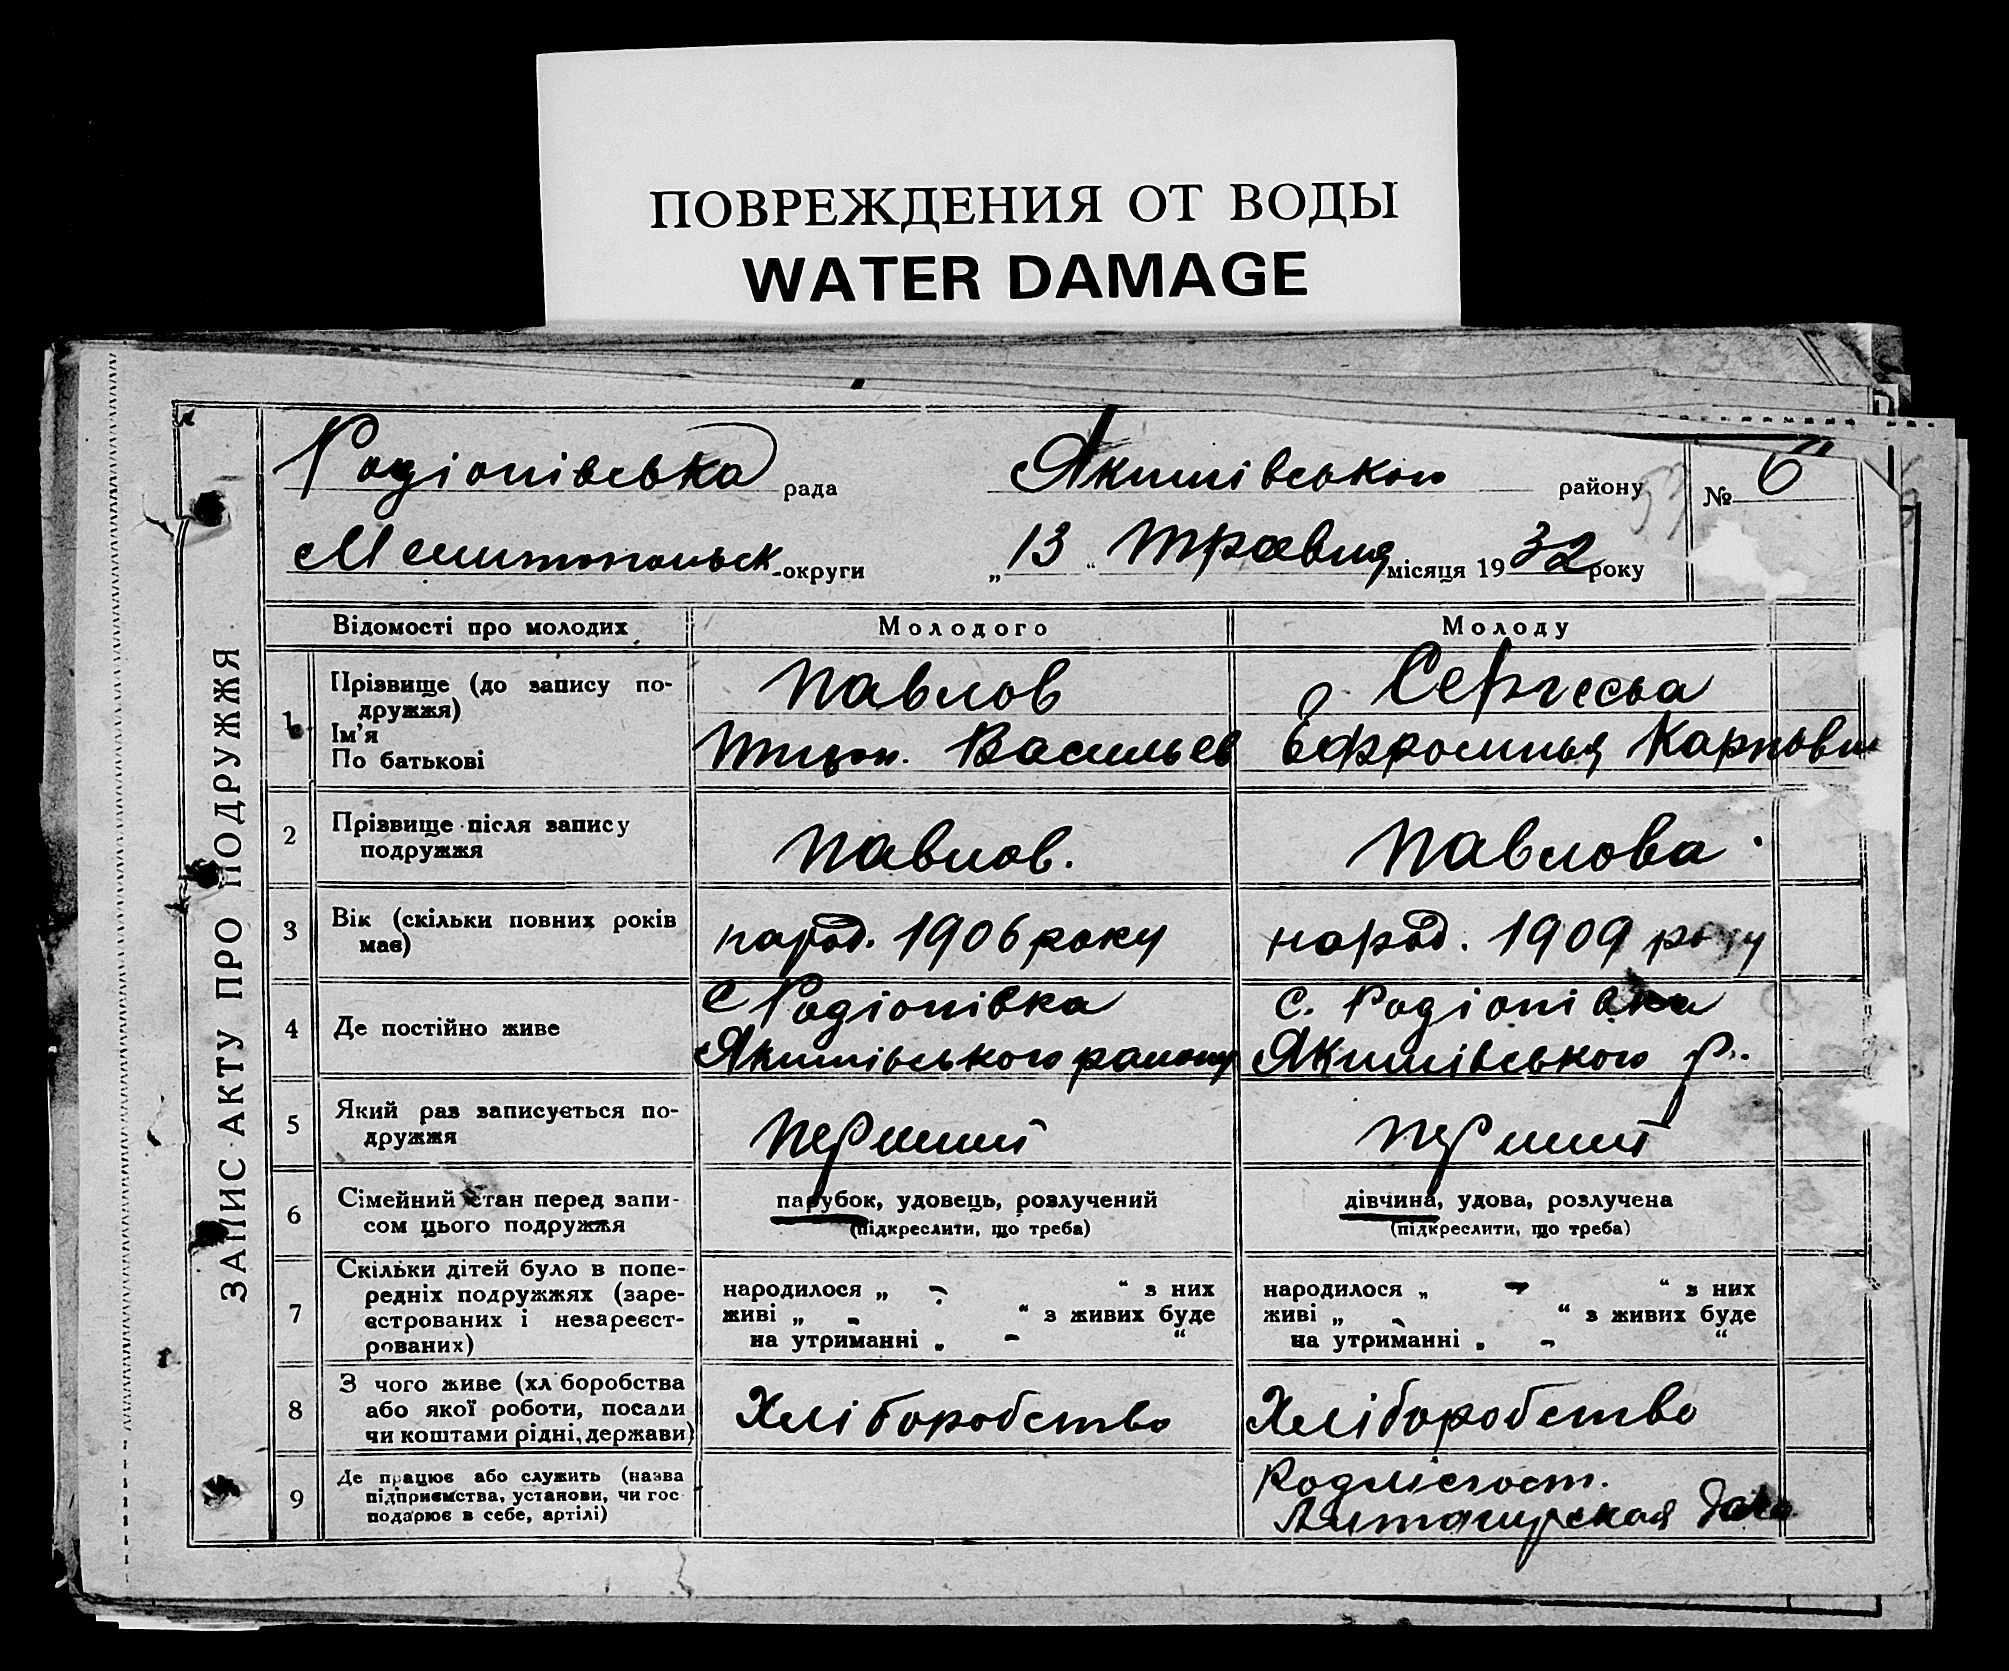 ПОВРЕЖДЕНИЯ ОТ ВОДЫ
WATER DAMAGE
ЗАПИС АКТУ ПРО ПОДРУЖЖЯ
Родіонівська рада Якимівського району № 6
Мелитопольськ округи „13“ травня місяця 1932 року
Відомості про молодих Молодого Молоду
1 Прізвище (до запису по-
дружжя)
Ім'я
По батькові
Павлов
Васильев
Сергеева
Ефросинья Карповн
2 Прізвище після запису
подружжя
Павлов.
Павлова
3 Вік (скільки повних років
має)
народ. 1906 року
народ. 1909 року
4 Де постійно живе
С Родіонівка
Якимівського району
с. Родіонівка
Якимівського р.
5 Який раз записується по-
дружжя
перший
перший
6 Сімейний стан перед запи-
сом цього подружжя
парубок, удовець, розлучений
(підкреслити, що треба)
дівчина, удова, розлучена
(підкреслити, що треба)
7 Скільки дітей було в попе-
редніх подружжях (заре-
єстрованих і незареєст-
рованих)
народилося „ - “ з них
живі „ - “ з живих буде
на утриманні „ - “
народилося „ - “ з них
живі „ - “ з живих буде
на утриманні „ - “
8 З чого живе (хл боробства
або якої роботи, посади
чи коштами рідні, держави)
Хліборобство
Хліборобство
9 Де працює або служить (назва
підприємства, установи, чи гос
подарює в себе, артілі)